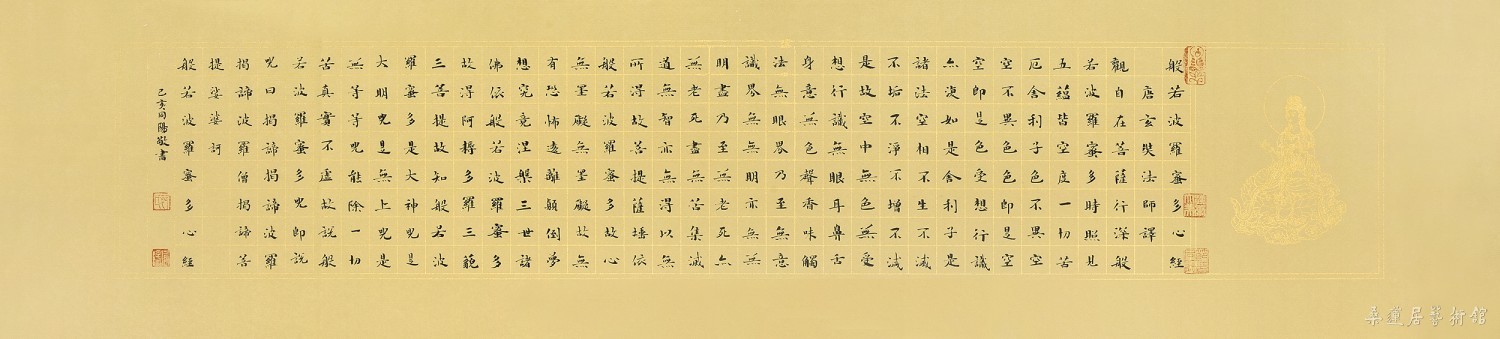 般若波羅蜜多心經
唐玄奘法師譯
觀自在菩薩行深般
若波羅蜜多時照見
五蘊皆空度一切苦
厄舍利子色不異空
空不異色色即是空
空即是色受想行識
亦復如是舍利子是
諸法空相不生不滅
不垢不淨不增不減
是故空中無色無受
想行識無眼耳鼻舌
身意無色聲香味觸
法無眼界乃至無意
識界無無明亦無無
明盡乃至無老死亦
無老死盡無苦集滅
道無智亦無得以無
所得故菩提薩埵依
般若波羅蜜多故心
無罣礙無罣礙故無
有恐怖遠離顛倒夢
想究竟涅槃三世諸
佛依般若波羅蜜多
故得阿耨多羅三藐
三菩提故知般若波
羅蜜多是大神咒是
大明咒是無上咒是
無等等咒能除一切
苦真實不虛故說般
若波羅蜜多咒即說
咒曰揭諦揭諦波羅
揭諦波羅僧揭諦菩
提娑婆訶
般若波羅蜜多心經
己亥向陽敬書
桑蓮居藝術館